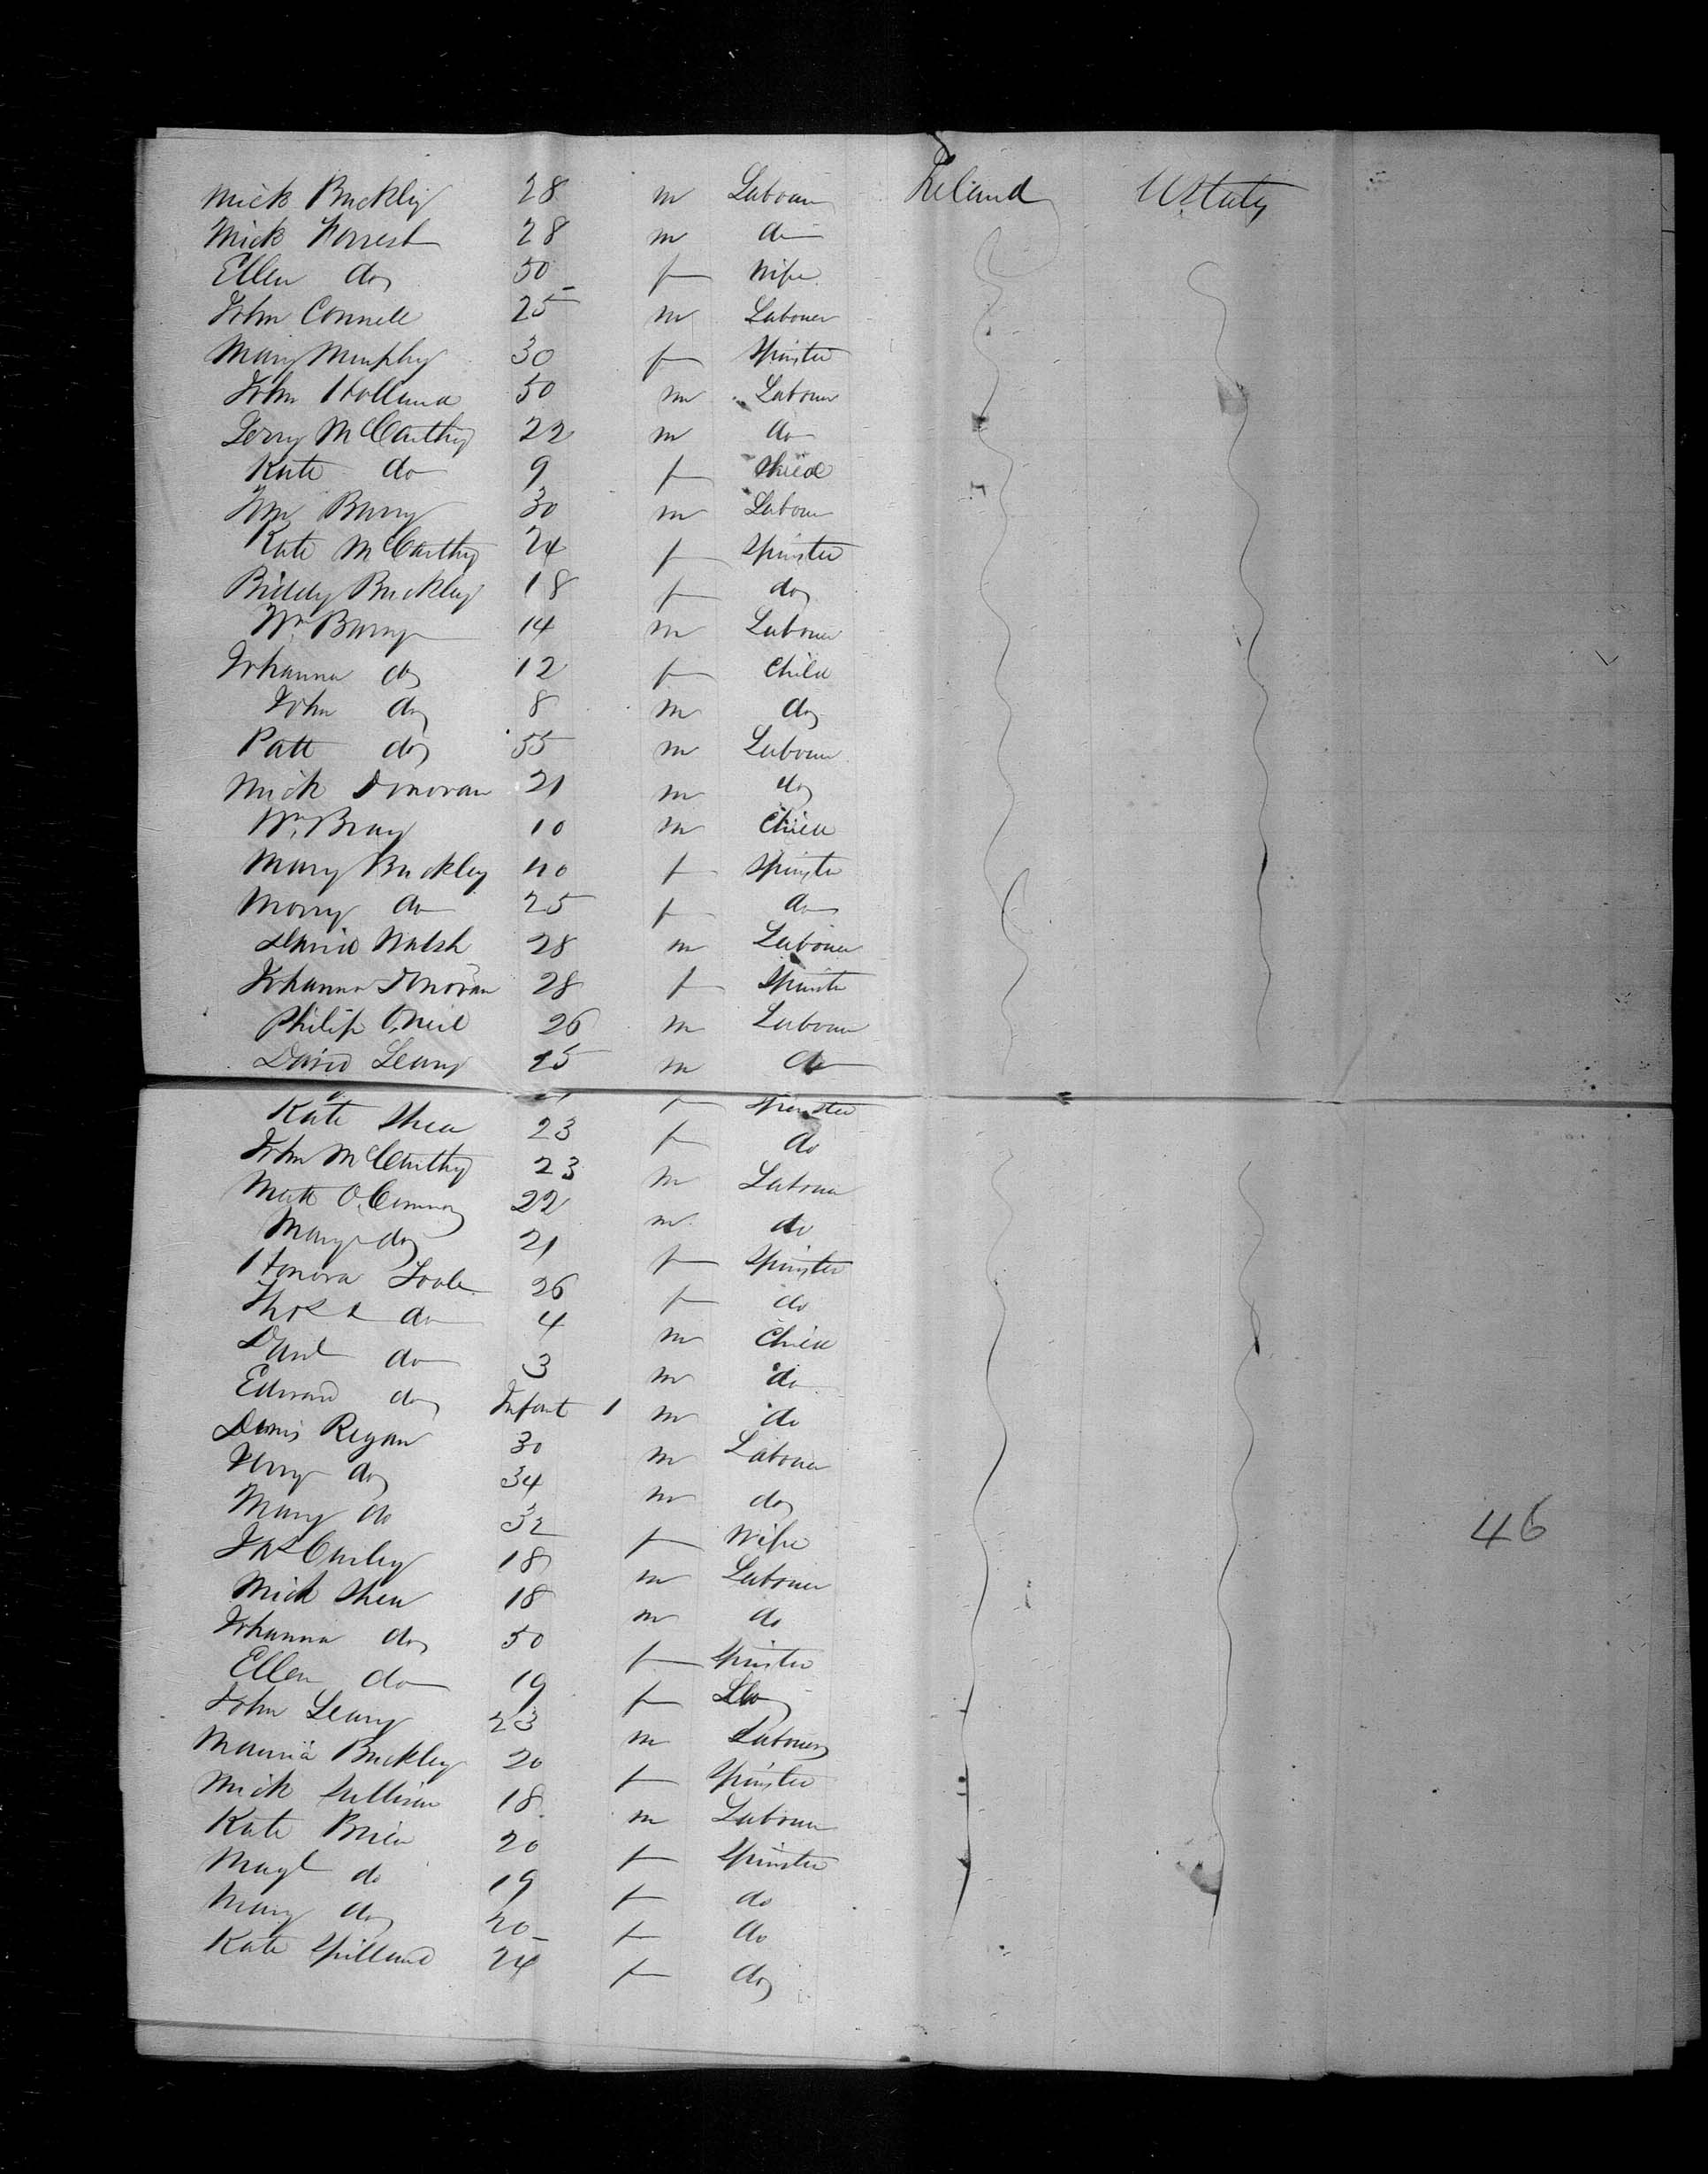 Mick Buckley 28 m Labourer Ireland UStates
Mick Forrest 28 m do
Ellen do 50 f Wife
John Connell 25 m Labourer
Mary Murphy 30 f Spinster
John Holland 50 m Labourer
Jerry McCarthy 22 m do
Kate do 9 f Child
Barry 30 m Labour
Kate McCarthy 24 f Spinster
Biddy Buckley 18 f do
Wm Barry 14 m Labourer
Johanna do 12 f Child
John do 8 m do
Patt do 55 m Labour
Mick Donovan 21 m do
Wm Bray 10 m Child
Mary Buckley 40 f Spinster
Morry do 25 f do
David Walsh 28 m Labourer
Johanna Donovan 28 f Spinster
Philip O,Neil 26 m Labour
David Leary 25 m do
f Spinster
Kate Shea 23 f do
John McCarthy 23 m Labour
Matt O,Connor 22 m do
Mary do 21 f Spinster
Honora Toole 26 f do
Thos do 4 m Child
Danl do 3 m do
Edward do Infant 1 m do
Denis Regan 30 m Labourer
Jerry do 34 m do
Mary do 32 f Wife
Jas Curley 18 m Labourer
Mick Shea 18 m do
46
Johanna do 50 f Spinster
Ellen do 19 f Do
John Leary 23 m Labourer
Mauria Buckley 20 f Spinster
Mick Sullivan 18 m Labour
Kate Brien 20 f Spinster
Magt do 19 f do
Mary do 20 f do
Kate Spilland 24 f do